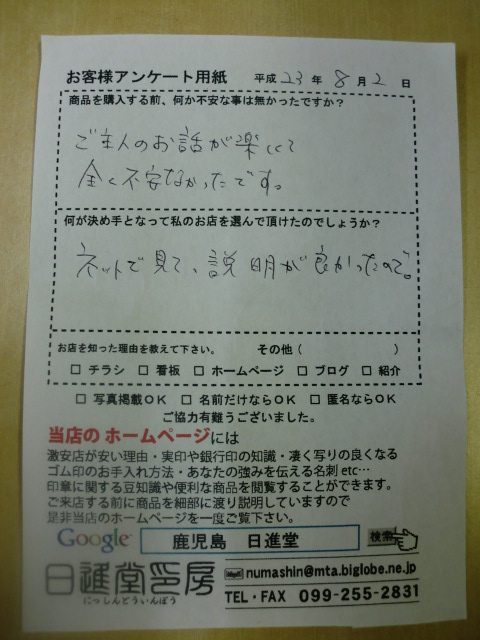 お客様アンケート用紙 平成 23 年 8 月 2 日
商品を購入する前、何か不安な事は無かったですか?
ご主人のお話が楽しくて
全く不安なかったです。
何が決め手となって私のお店を選んで頂けたのでしょうか?
ネットで見て、説明が良かったので。
お店を知った理由を教えて下さい。 その他( )
□ チラシ □ 看板 □ ホームページ □ ブログ □ 紹介
□ 写真掲載OK □ 名前だけならOK □ 匿名ならOK
ご協力有難うございました。
当店の ホームページには
激安店が安い理由・実印や銀行印の知識・凄く写りの良くなる
ゴム印のお手入れ方法・あなたの強みを伝える名刺 etc…
印章に関する豆知識や便利な商品を閲覧することができます。
ご来店する前に商品を細部に渡り説明していますので
是非当店のホームページを一度ご覧下さい。
Google 鹿児島 日進堂 検索
日進堂印房 numashin@mta.biglobe.ne.jp
にっしんどういんぼう TEL・FAX 099-255-2831